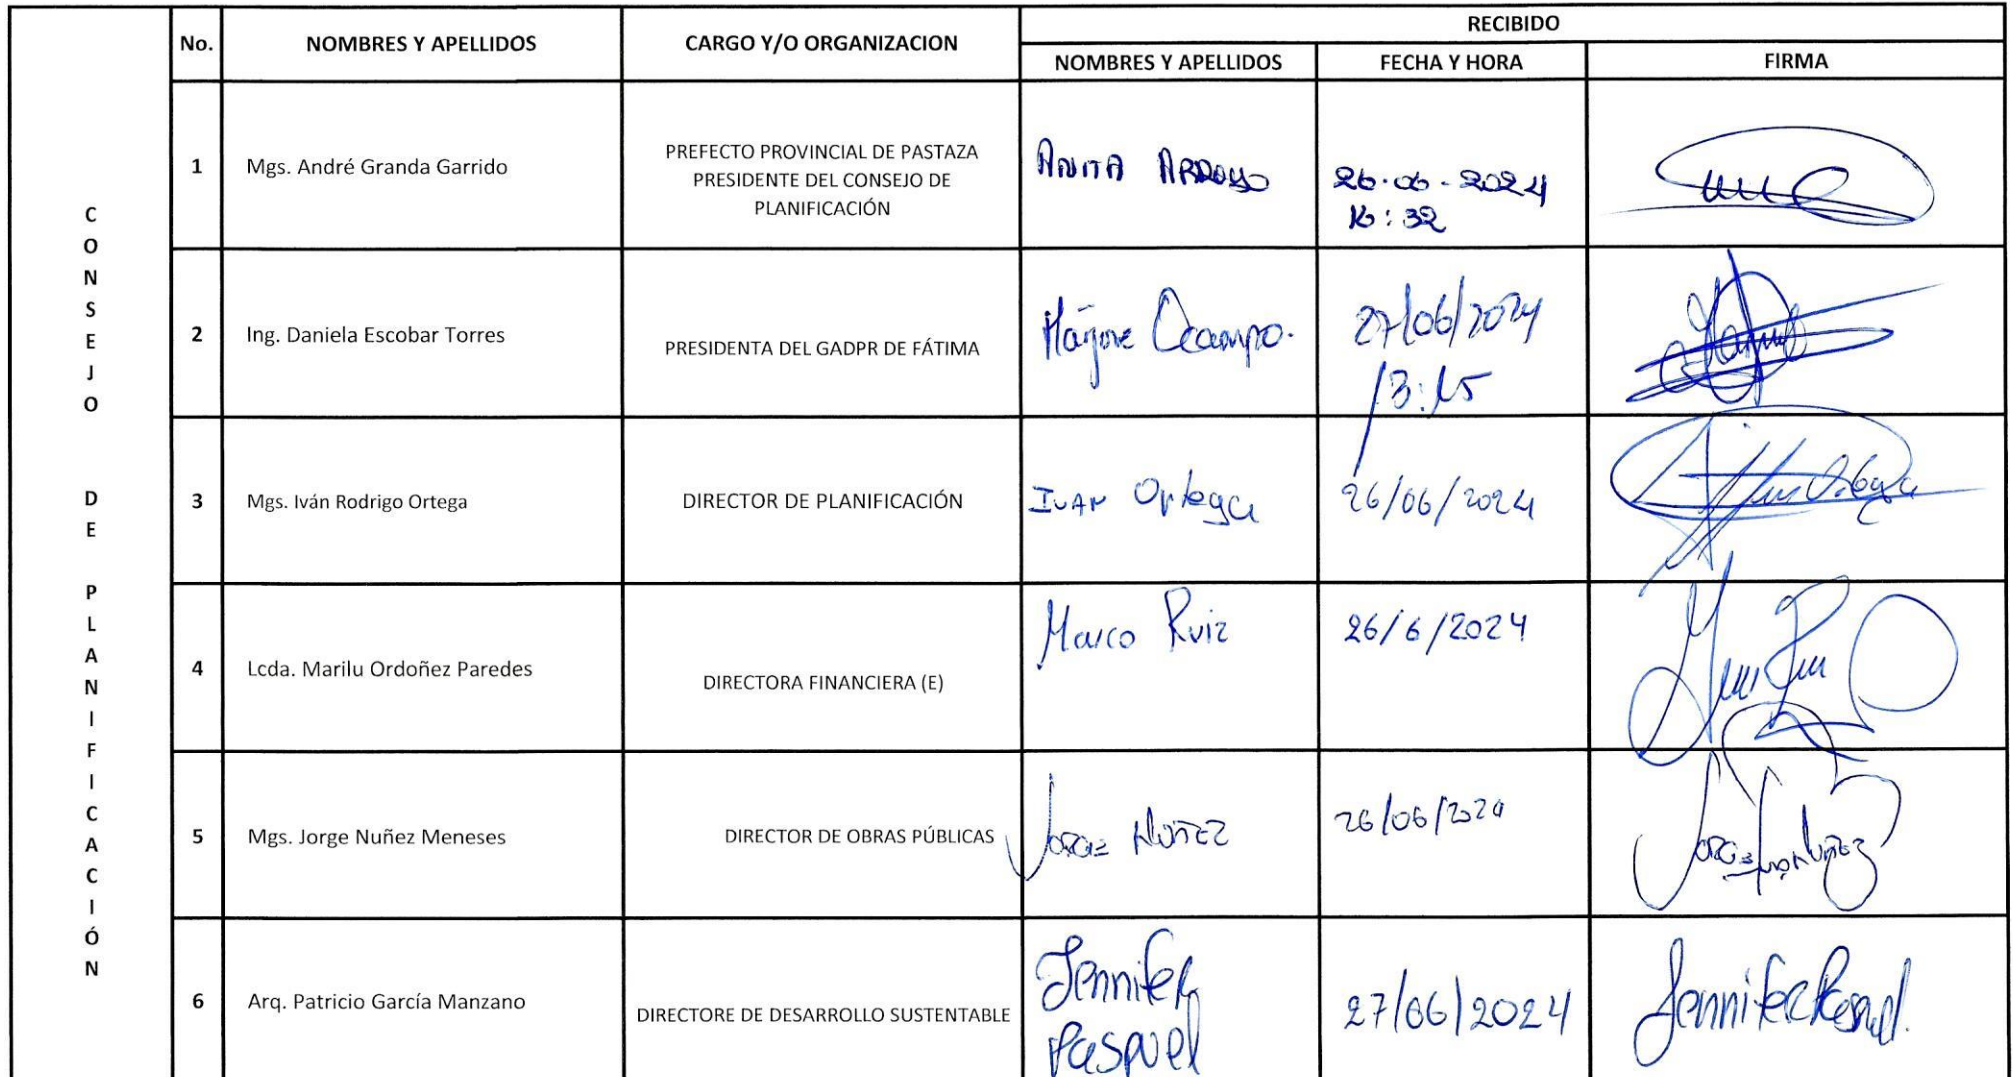 CONSEJO DE PLANIFICACIÓN
No. NOMBRES Y APELLIDOS CARGO Y/O ORGANIZACION RECIBIDO
NOMBRES Y APELLIDOS FECHA Y HORA FIRMA
1 Mgs. André Granda Garrido PREFECTO PROVINCIAL DE PASTAZA
PRESIDENTE DEL CONSEJO DE
PLANIFICACIÓN
ANITA ARROYO 26-06-2024
16:32
2 Ing. Daniela Escobar Torres PRESIDENTA DEL GADPR DE FÁTIMA Ocampo. 27/06/2024
13:15
3 Mgs. Iván Rodrigo Ortega DIRECTOR DE PLANIFICACIÓN IVAN Ortega 26/06/2024
4 Lcda. Marilu Ordoñez Paredes DIRECTORA FINANCIERA (E) Marco Ruiz 26/6/2024
5 Mgs. Jorge Nuñez Meneses DIRECTOR DE OBRAS PÚBLICAS JORGE NUÑEZ 26/06/2024
6 Arq. Patricio García Manzano DIRECTORE DE DESARROLLO SUSTENTABLE Jennifer
Paspuel
27/06/2024 Jennifer Paspuel.